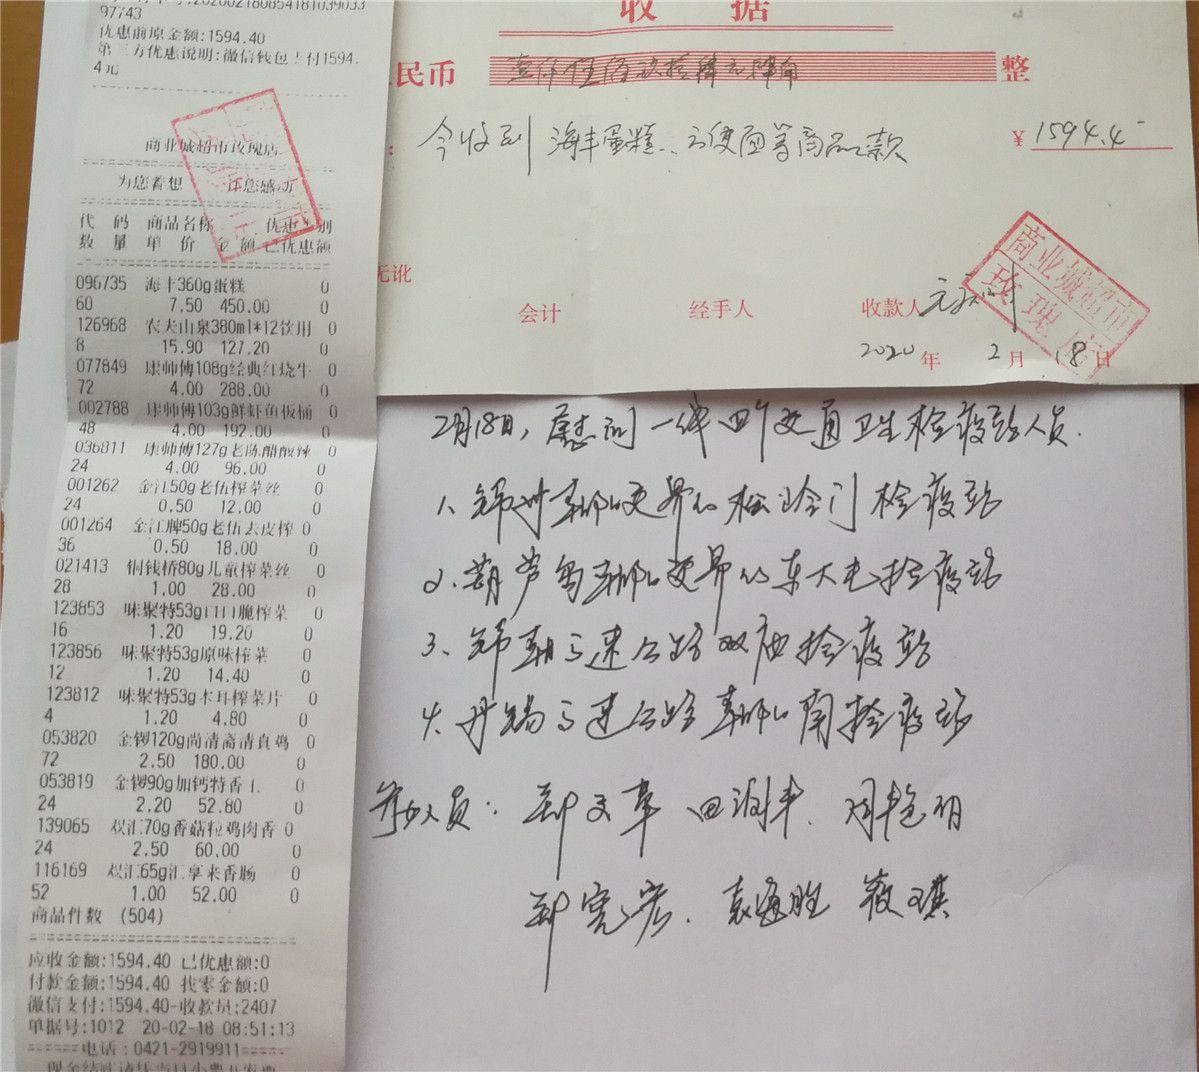 97743
优惠前原金额:1594.40
第三方优惠说明:微信钱包支付1594.
4元
商业城超市玫瑰店
为您着想 让您感动
代 码 商品名称 优惠 别
数 量 单 价 金 额 已优惠额
096735 海丰360g蛋糕 0
60 7.50 450.00 0
126968 农夫山泉380ml*12饮用 0
8 15.90 127.20 0
077849 康师傅108g经典红烧牛 0
72 4.00 288.00 0
002788 康师傅103g鲜虾鱼板桶 0
48 4.00 192.00 0
036811 康师傅127g老陈醋酸辣 0
24 4.00 96.00 0
001262 金江50g老伍榨菜丝 0
24 0.50 12.00 0
001264 金江牌50g老伍去皮榨 0
36 0.50 18.00 0
021413 铜钱桥80g儿童榨菜丝 0
28 1.00 28.00 0
123853 味聚特53g口口脆榨菜 0
16 1.20 19.20 0
123856 味聚特53g原味榨菜 0
12 1.20 14.40 0
123812 味聚特53g木耳榨菜片 0
4 1.20 4.80 0
053820 金锣120g尚清斋清真鸡 0
72 2.50 180.00 0
053819 金锣90g加钙特香王 0
24 2.20 52.80 0
139065 双汇70g香菇粒鸡肉香 0
24 2.50 60.00 0
116169 双汇65g汇享来香肠 0
52 1.00 52.00 0
商品件数 (504)
应收金额:1594.40 已优惠额:0
付款金额:1594.40 找零金额:0
微信支付:1594.40-收款员:2407
单据号:1012 20-02-18 08:51:13
======电话:0421-2919911=====
收 据
民币 壹仟伍佰玖拾肆元肆角 整
今收到 海丰蛋糕、方便面等商品款 ¥1594.4
无讹
会计 经手人 收款人
商业城超市
玫瑰店
2020 年 2 月 18 日
2月18日,慰问一线四个交通卫生检疫站人员.
1、锦州朝阳交界的松岭门检疫站
2、葫芦岛朝阳交界的东大屯检疫站
3、锦朝高速公路双庙检疫站
4、丹锡高速公路朝阳南检疫站
参加人员: 郑文革 田润丰、周艳明
郑宪宏、袁海胜 筱琪